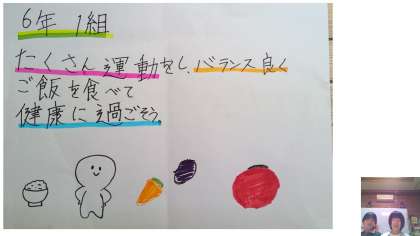 6年 1組
たくさん運動をし、バランス良く
ご飯を食べて
健康に過ごそう。